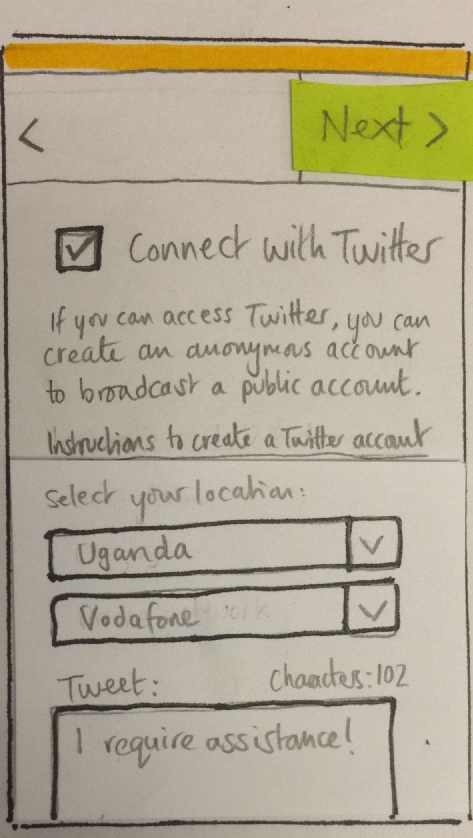 <
Next >
Connect with Twitter
If you can access Twitter, you can
create an anonymous account
to broadcast a public account.
Instructions to create a Twitter account
Select your location:
Uganda
Vodafone
Tweet: Characters:102
I require assistance!